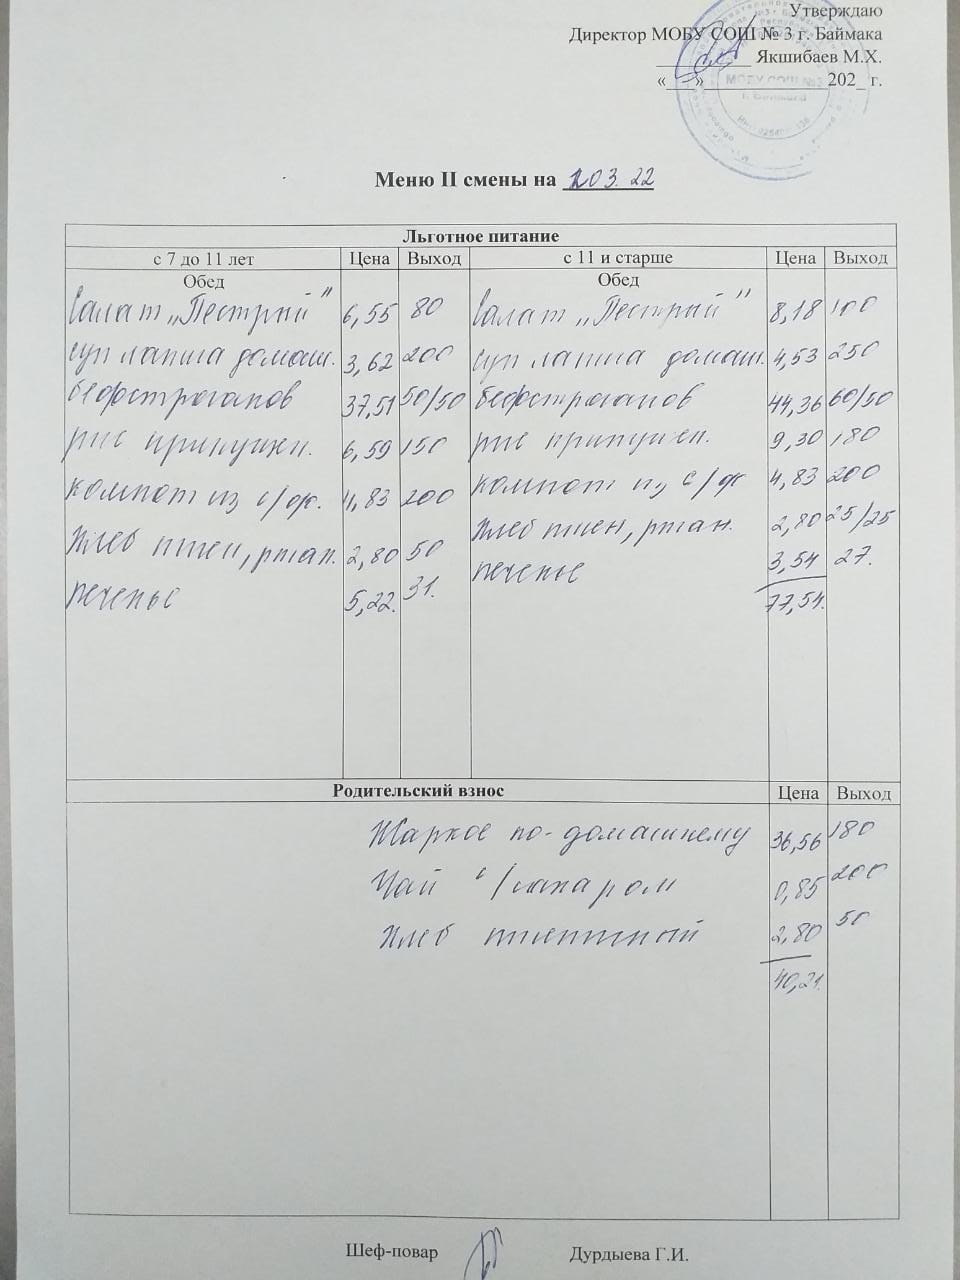 Утверждаю
Директор МОБУ СОШ № 3 г. Баймака
Якшибаев М.Х.
«___»____________ 202_ г.
МОБУ СОШ №3
Меню II смены на 03. 22
Льготное питание
с 7 до 11 лет Цена Выход с 11 и старше Цена Выход
Обед Обед
Салат „Пестрый” 6,55 80 Салат „Пестрый” 8,18 100
суп лапша домаш. 3,62 200 суп лапша домаш. 4,53 250
бефстроганов 37,51 50/50 бефстроганов 44,36 60/50
рис припущен. 6,59 150 рис припущен. 9,30 180
компот из с/фр. 4,83 200 компот из с/фр 4,83 200
Хлеб пшен, ржан. 2,80 50 Хлеб пшен, ржан. 2,80 25/25
печенье 5,22. 31. печенье 3,54 27.
77,54.
Родительский взнос Цена Выход
Жаркое по-домашнему 36,56 180
Чай с/сахаром 0,85 200
Хлеб пшеничный 2,80 50
40,21.
Шеф-повар Дурдыева Г.И.